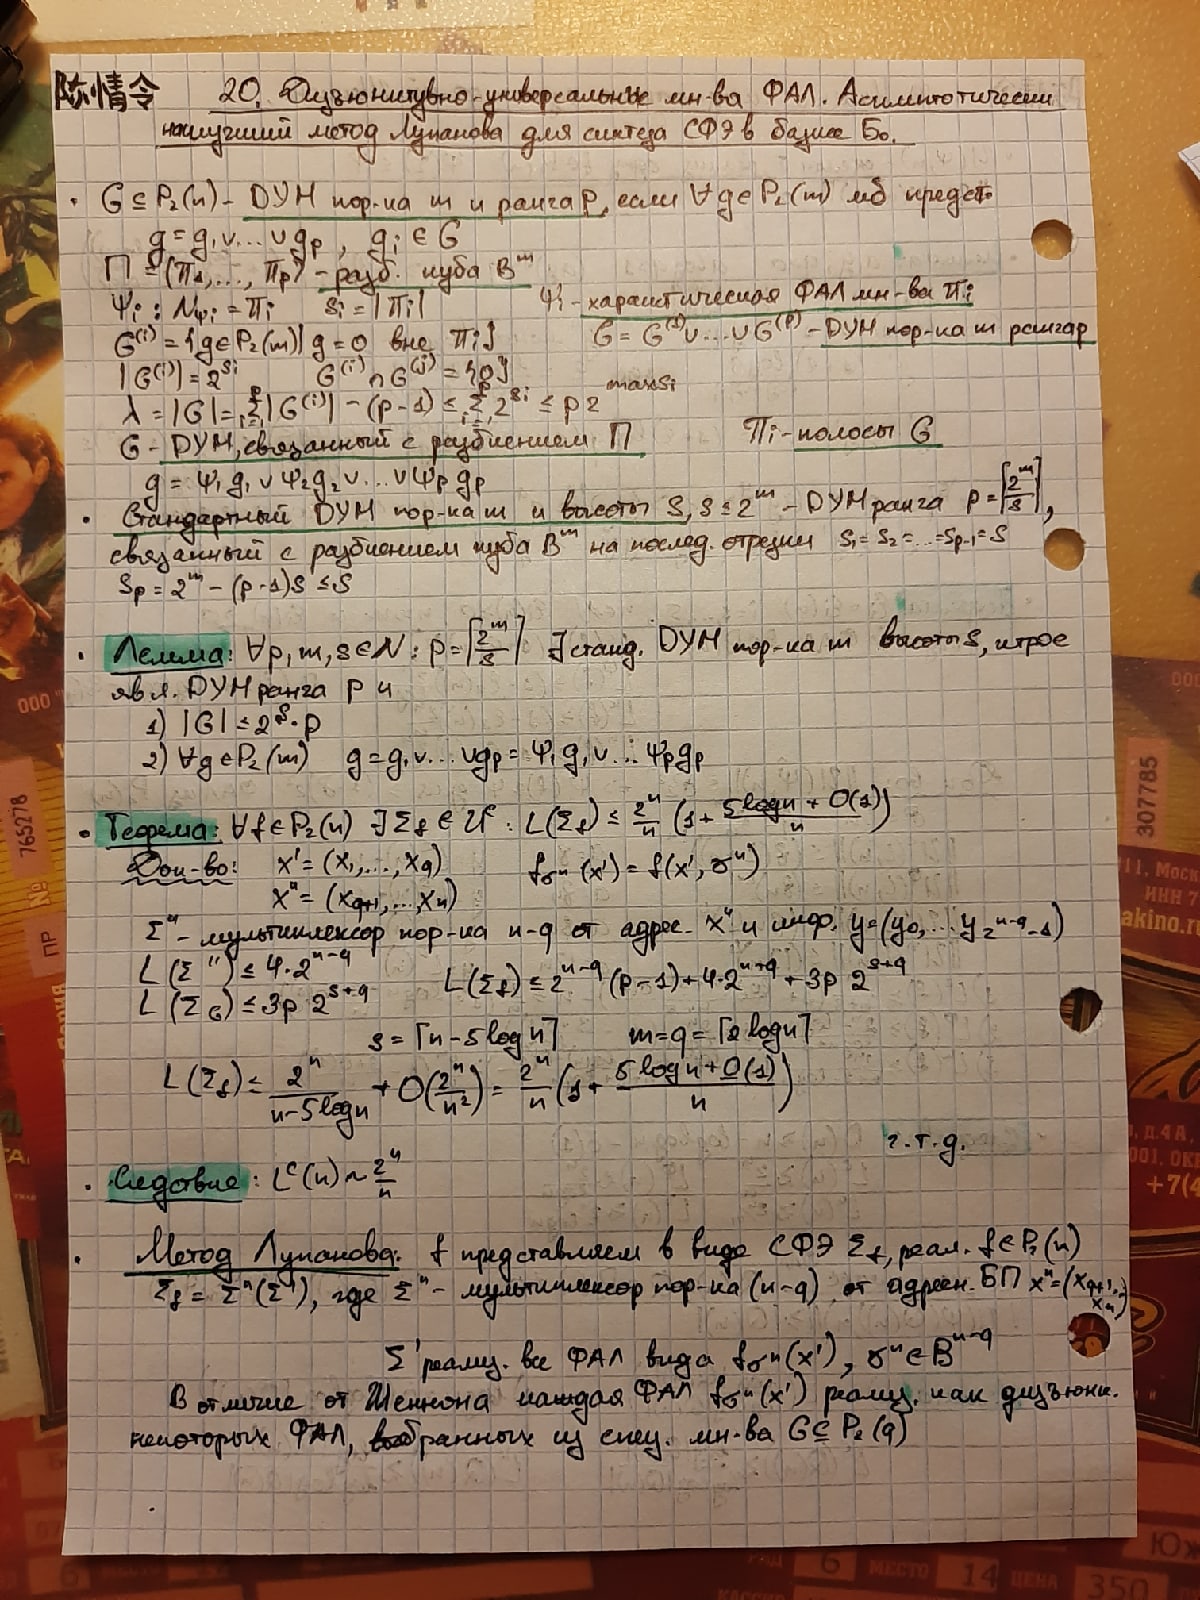 陈情令
20. Дизъюнктивно-универсальные мн-ва ФАЛ. Асимптотически
наилучший метод Лупанова для синтеза СФЭ в базисе Б₀.
• G ⊆ P₂(n) - ДУМ пор-ка m и ранга p, если ∀g∈P₂(m) мб предст
g = g₁∨...∨gₚ , gᵢ ∈ G
Π = (π₁,..., πₚ) - разб. куба Bᵐ
Ψᵢ : N_ψᵢ = πᵢ sᵢ = |πᵢ| Ψᵢ - характистическая ФАЛ мн-ва πᵢ
G⁽ⁱ⁾ = {g∈P₂(m)| g = 0 вне πᵢ} G = G⁽¹⁾∨...∨G⁽ᵖ⁾ - ДУМ пор-ка m ранга p
|G⁽ⁱ⁾| = 2^{sᵢ} G⁽ⁱ⁾ ∩ G⁽ʲ⁾ = {0}
λ = |G| = Σᵢ₌₁ᵖ |G⁽ⁱ⁾| - (p-1) ≤ Σᵢ₌₁ᵖ 2^{sᵢ} ≤ p 2^{max sᵢ}
G - ДУМ, связанный с разбиением Π πᵢ - полосы G
g = Ψ₁g₁ ∨ Ψ₂g₂ ∨ ... ∨ Ψₚgₚ
• Стандартный ДУМ пор-ка m и высоты s, s ≤ 2ᵐ - ДУМ ранга p = ⌈2ᵐ/s⌉,
связанный с разбиением куба Bᵐ на послед. отрезки s₁ = s₂ = ... = sₚ₋₁ = s
sₚ = 2ᵐ - (p-1)s ≤ s
• Лемма: ∀p, m, s∈N : p = ⌈2ᵐ/s⌉ ∃ станд. ДУМ пор-ка m высоты s, ктрое
явл. ДУМ ранга p и
1) |G| ≤ 2ˢ·p
2) ∀g∈P₂(m) g = g₁∨...∨gₚ = Ψ₁g₁∨...Ψₚgₚ
• Теорема: ∀f∈P₂(n) ∃Σ_f ∈ U^C : L(Σ_f) ≤ 2ⁿ/n (1 + (5logn + O(1))/n)
Док-во: x' = (x₁,..., x_q) f_σ''(x') = f(x', σ'')
x'' = (x_{q+1},..., xₙ)
Σ'' - мультиплексор пор-ка n-q от адрес. x'' и инф. y = (y₀,... y_{2^{n-q}-1})
L(Σ'') ≤ 4·2^{n-q} L(Σ_f) ≤ 2^{n-q}(p-1) + 4·2^{n+q} + 3p 2^{s+q}
L(Σ_G) ≤ 3p 2^{s+q}
s = ⌈n - 5logn⌉ m = q = ⌈2logn⌉
L(Σ_f) ≤ 2ⁿ/(n-5logn) + O(2ⁿ/n²) = 2ⁿ/n (1 + (5logn + O(1))/n)
ч.т.д.
• Следствие: L^C(n) ~ 2ⁿ/n
• Метод Лупанова: f представляем в виде СФЭ Σ_f, реал. f∈P₂(n)
Σ_f = Σ''(Σ'), где Σ'' - мультиплексор пор-ка (n-q) от адресн. БП x'' = (x_{q+1},.. xₙ)
Σ' реализ. все ФАЛ вида f_σ''(x'), σ''∈B^{n-q}
В отличие от Шеннона каждая ФАЛ f_σ''(x') реализ. как дизъюнк.
некоторых ФАЛ, выбранных из спец. мн-ва G ⊆ P₂(q)
765278
ПР №
ООО
307785
11, Москв
ИНН 7
akino.ru
д.4А
001. ОК
+7(4
6 МЕСТО 14 ЦЕНА 350